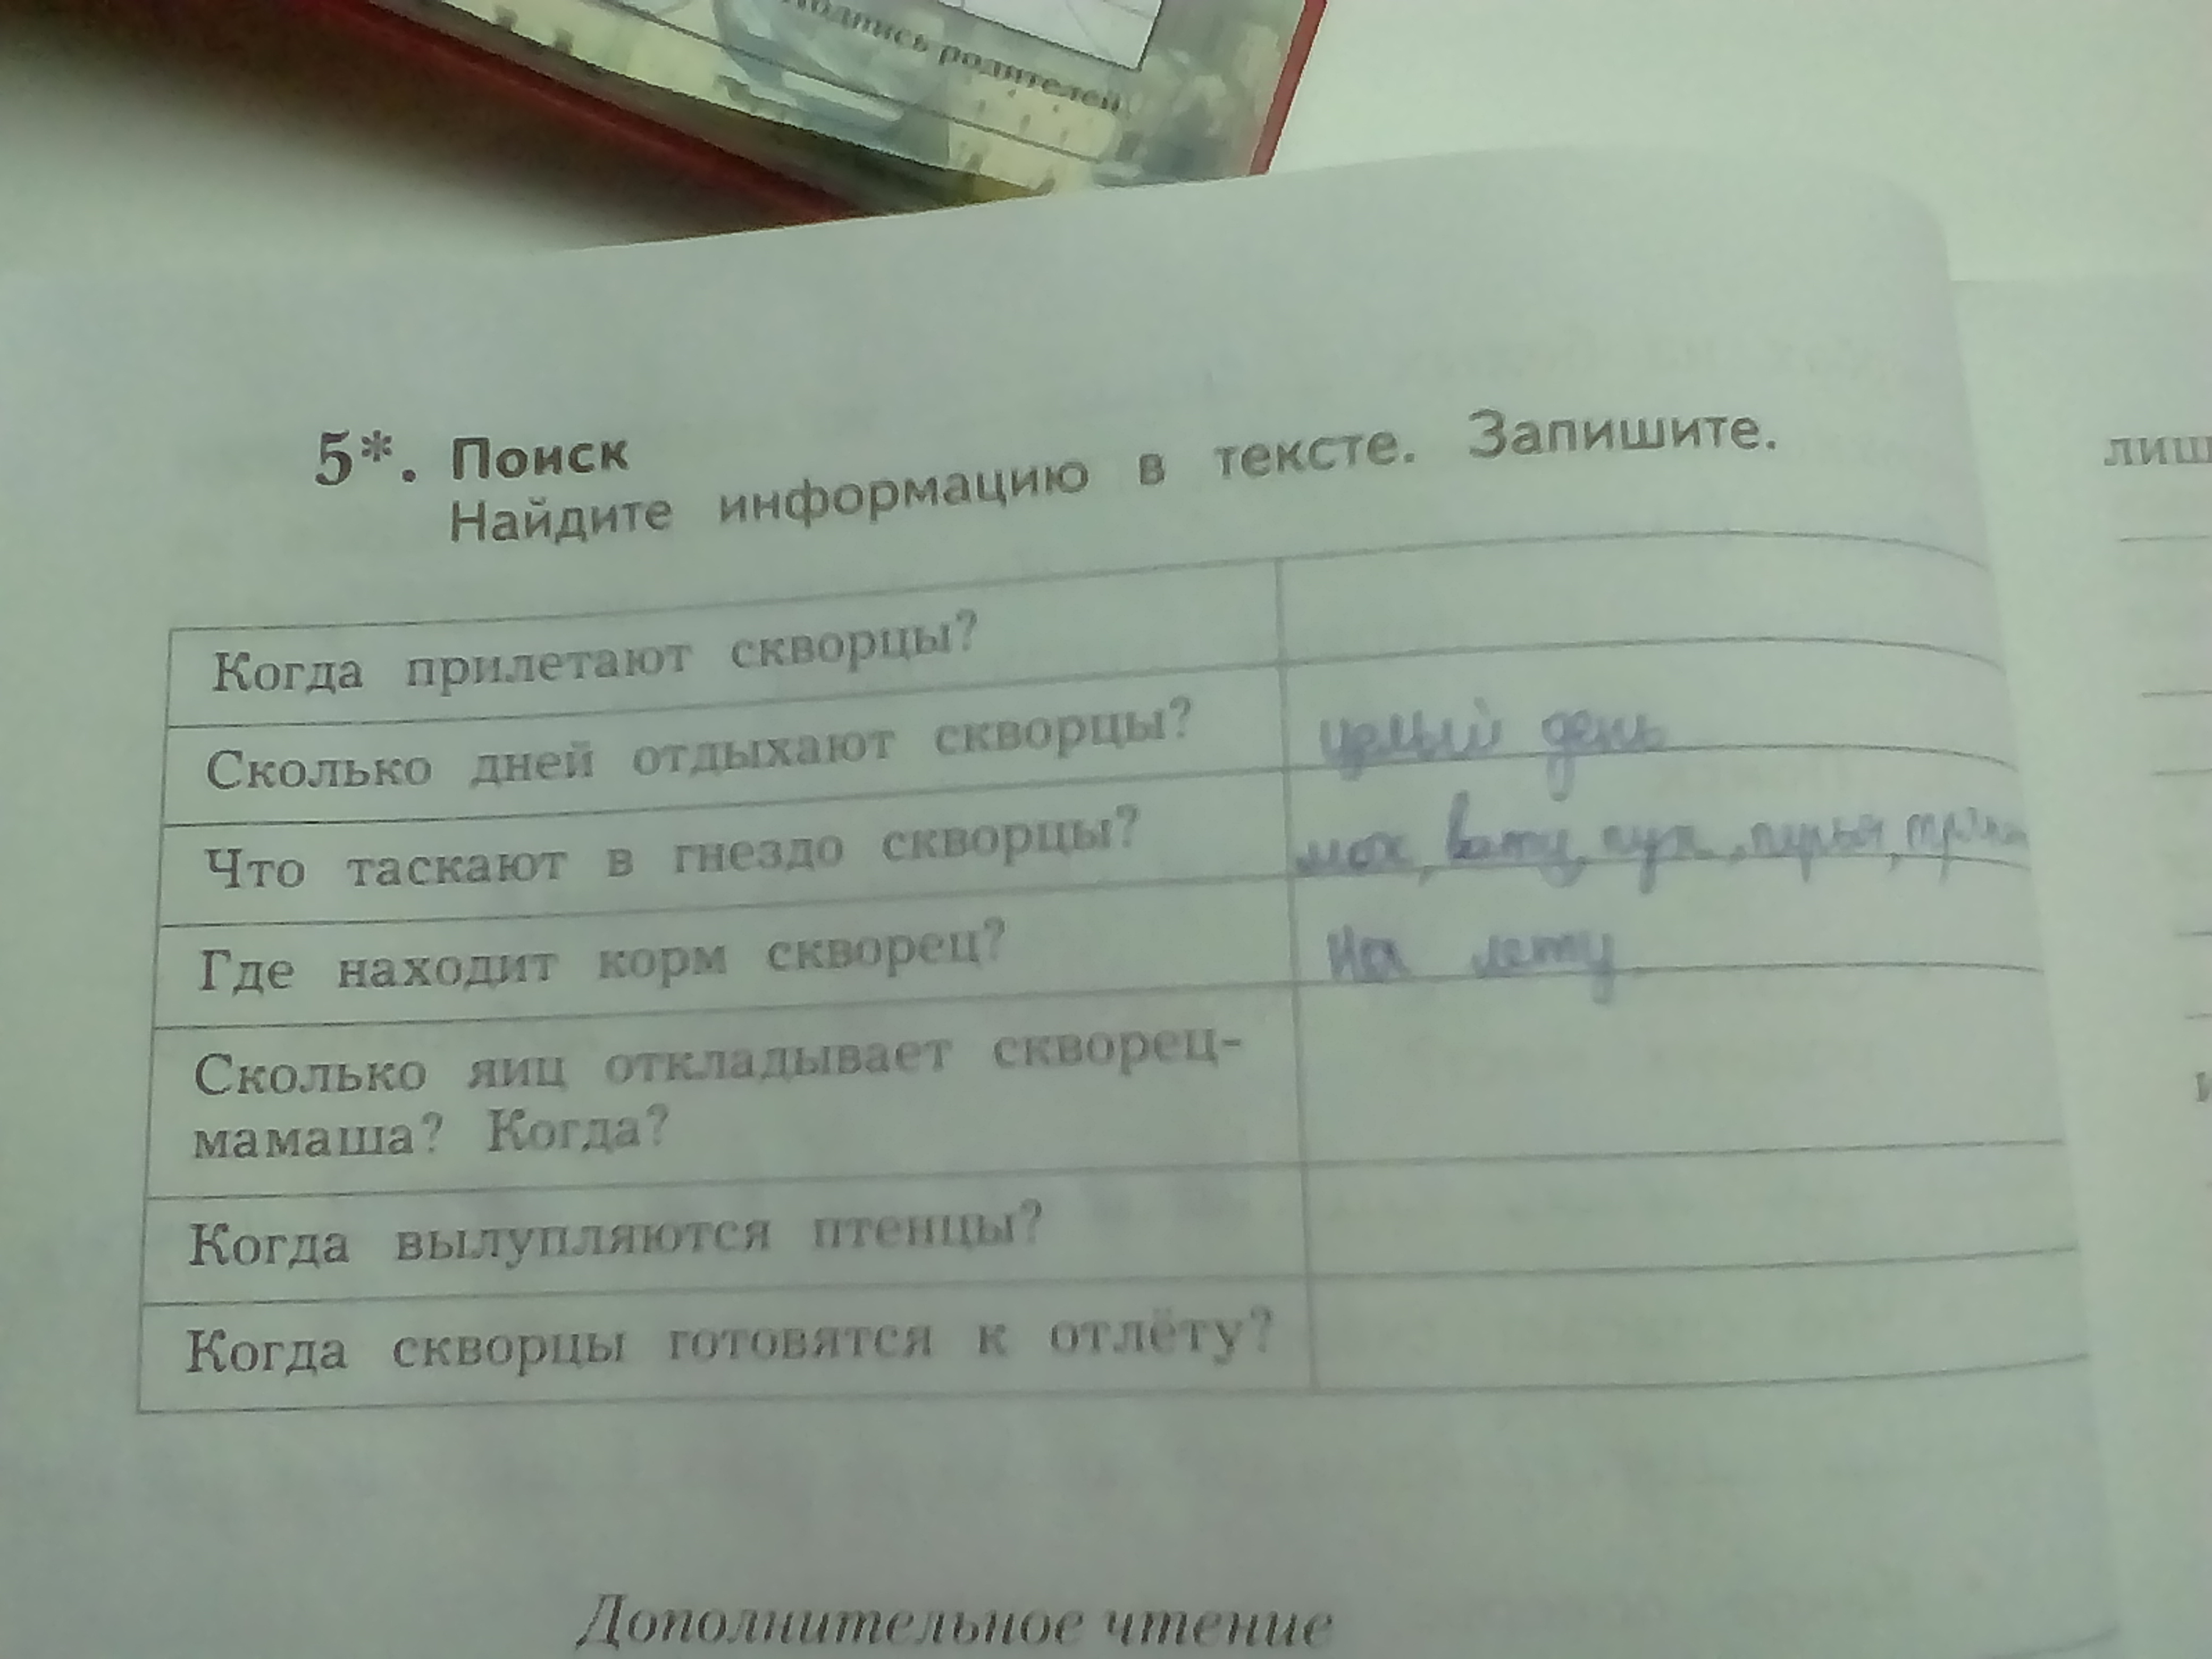 Подпись родителей
5*. Поиск
Найдите информацию в тексте. Запишите.
Когда прилетают скворцы?
Сколько дней отдыхают скворцы? целый день
Что таскают в гнездо скворцы? мох, вату, пух, перья,
Где находит корм скворец? На лету
Сколько яиц откладывает скворец-
мамаша? Когда?
Когда вылупляются птенцы?
Когда скворцы готовятся к отлёту?
Дополнительное чтение
лиш